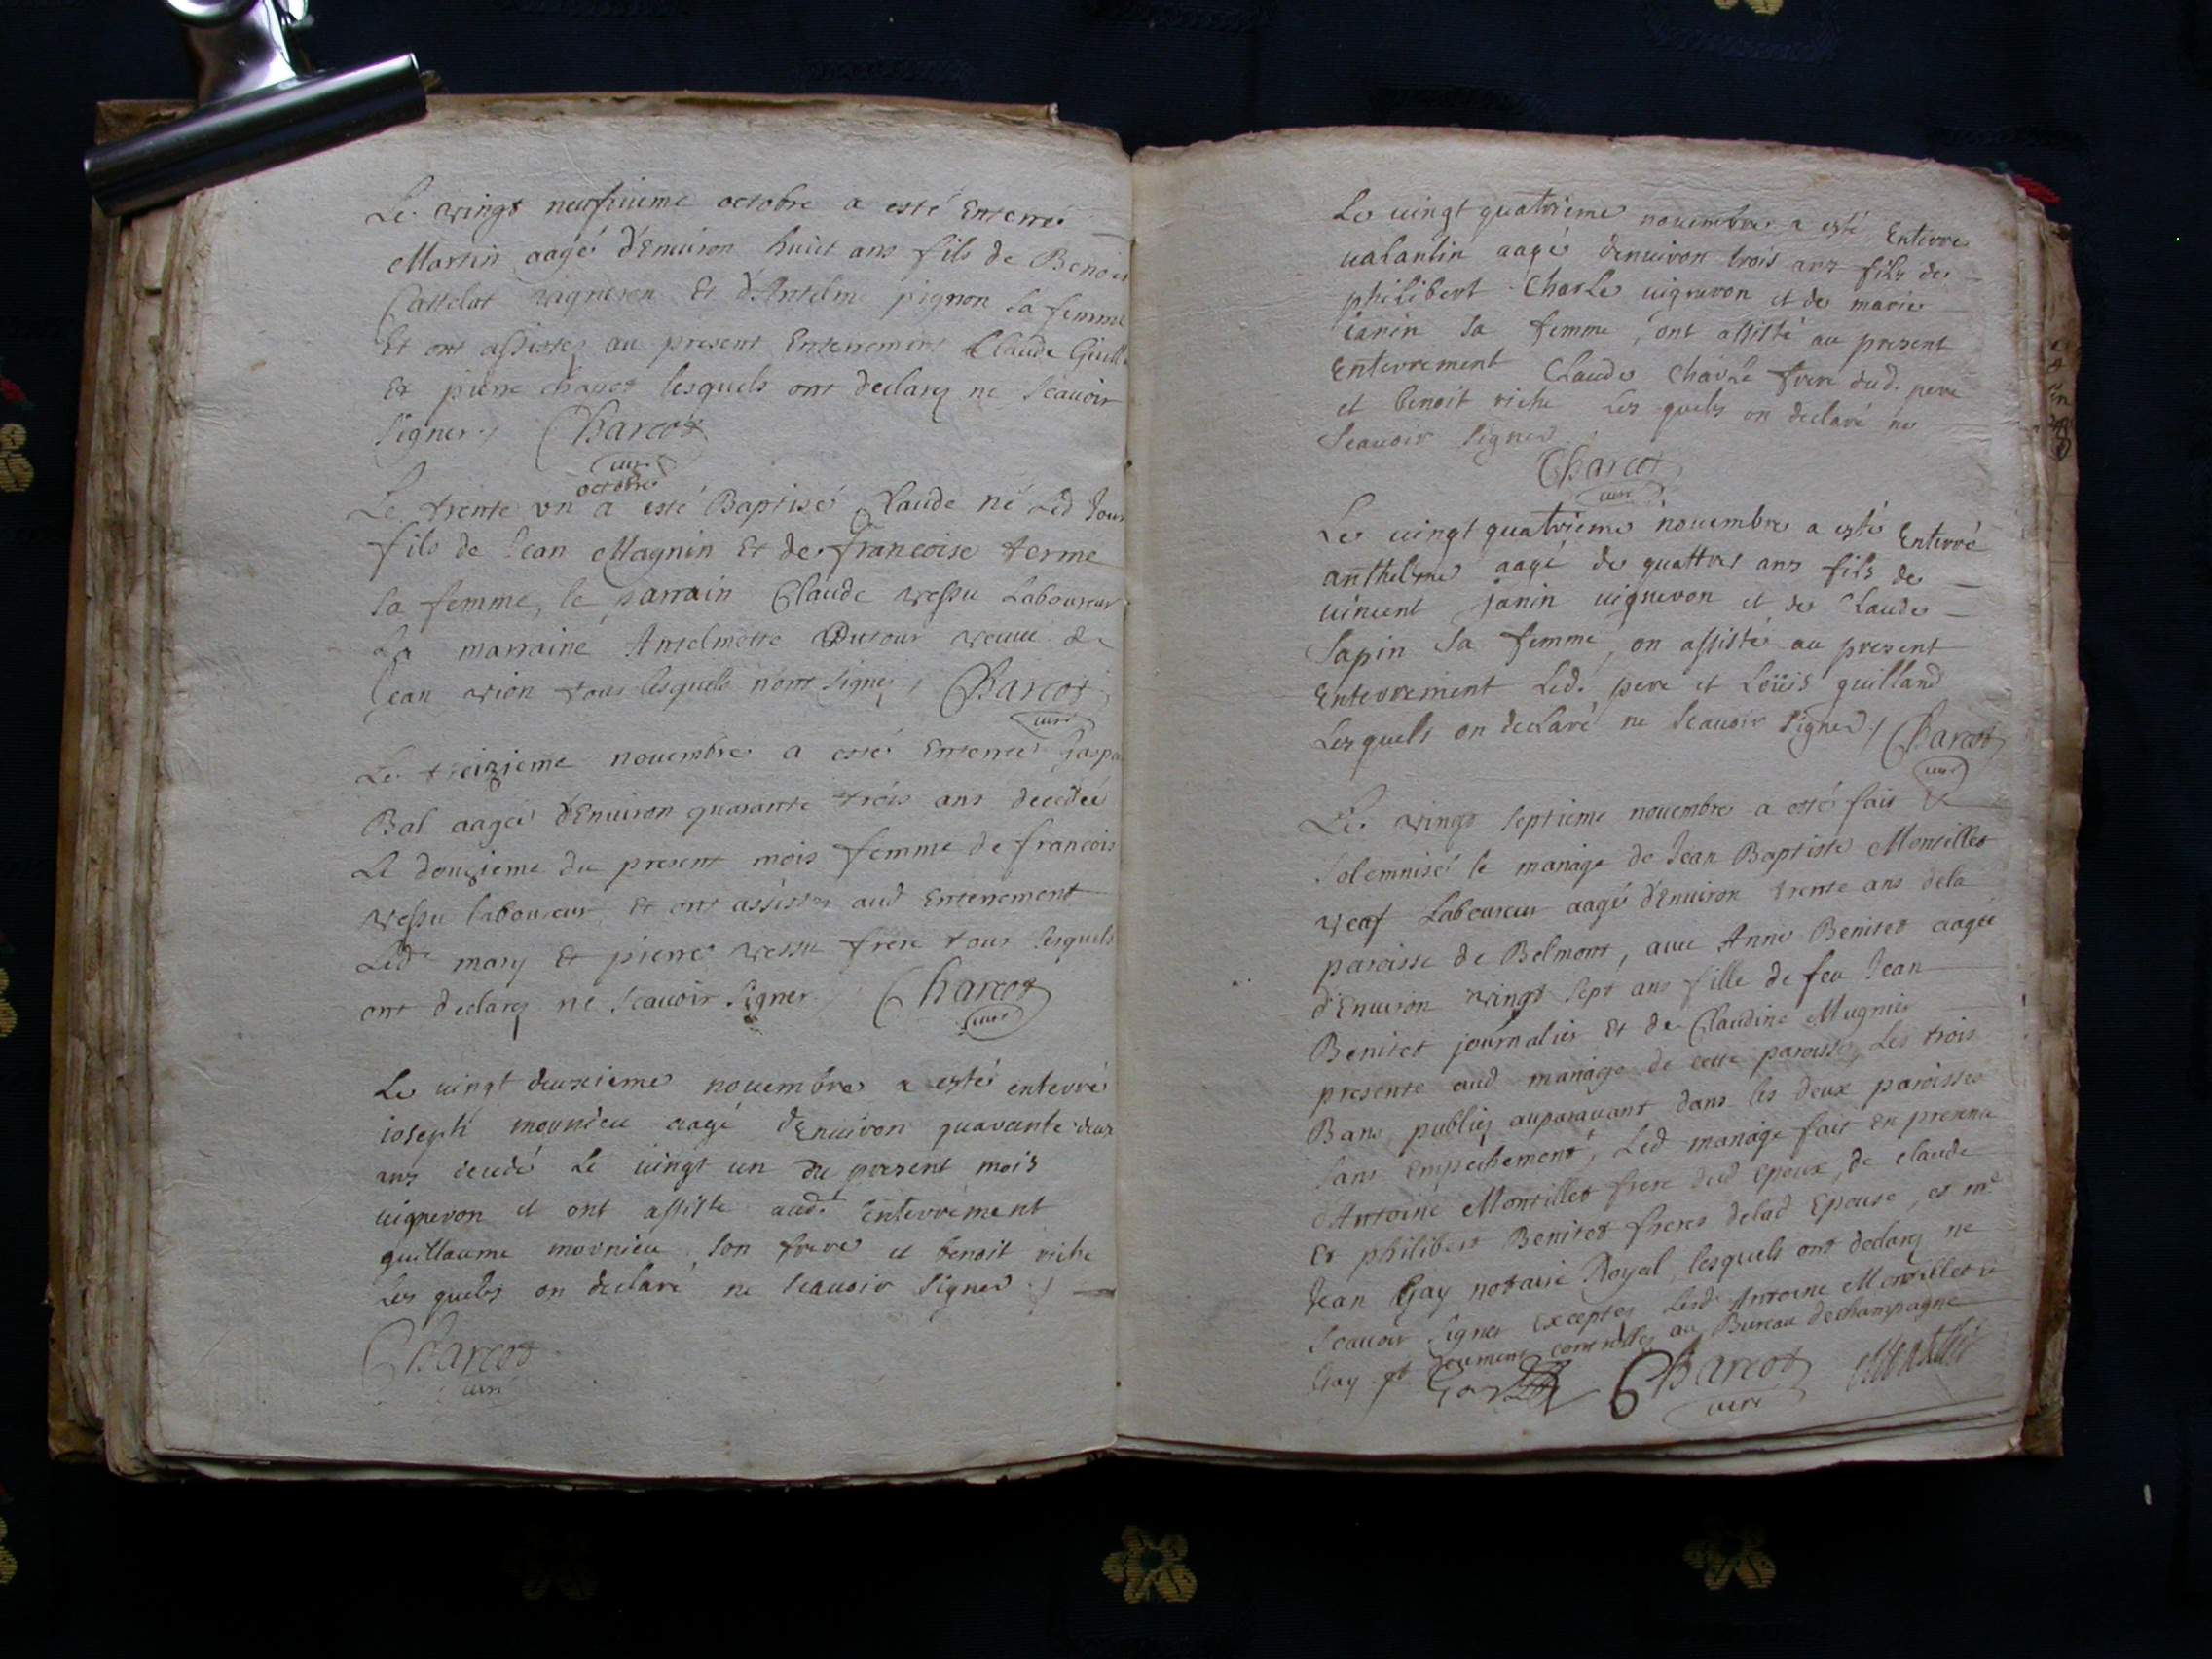 Le vingt neufvieme octobre a esté Enterré
Martin aagé d'Environ huict ans fils de Benoit
Cattelat vigneron Et d'Antelme pignon sa femme
Et ont assistez au present Enterrement Claude
Et pierre lesquels ont declarez ne scavoir
signer / Charcot
curé
octobre
Le trente un a esté Baptisé Claude né Led Jour
fils de Jean Magnin Et de francoise terme
sa femme, le parrain Claude vessu Laboureur
La marraine Antelmette Dutour veuve de
Jean vion tous lesquels n'ont signez / Charcot
curé
Le treizieme novembre a esté Enterrée
Bal aagée d'Environ quarante trois ans decedée
Le douzieme du present mois femme de francois
vessu laboureur, Et ont assistez aud Enterrement
Led mary Et pierre vessu frere tous lesquels
ont declarez ne scavoir signer / Charcot
curé
Le uingt deuxieme nouembre a esté enterré
ioseph mornieu aagé d'Enuiron quarante deux
ans decedé Le uingt un du present mois
uigneron et ont assisté aud. enterrement
guillaume mornieu son frere et benoit riche
Les quels on declaré ne scauoir signer /
Charcot
curé
Le uingt quatrieme nouembre a esté Enterré
ualantin aagé denuiron trois ans fils de
philibert Charle uigneron et de marie
ianin sa femme, ont assisté au present
Enterrement Claude Charle frere dud. pere
et benoit riche Les quels on declaré ne
scauoir signer
Charcot
curé
Le uingt quatrieme nouembre a esté Enterré
anthelme aagé de quattre ans fils de
uincent janin uigneron et de Claude
sapin sa femme, on assisté au present
Enterrement Led. pere et Loüis guilland
Lesquels on declaré ne scauoir signer / Charcot
curé
Le vingt septieme novembre a esté fait
solemnisé le mariage de Jean Baptiste Montillet
veaf Laboureur aagé d'Environ trente ans dela
paroisse de Belmont, avec Anne Benitet aagée
d'Environ vingt sept ans fille de feu Jean
Benitet journalier Et de Claudine Mugnier
presente aud mariage de cette paroisse, Les trois
Bans publiez auparavant dans les deux paroisses
sans empechement, Led mariage fait en presence
d'Antoine Montillet frere dud Epoux, de claude
Et philibert Benitet freres delad Epouse, et me
Jean Gay notaire Royal, lesquels ont declarez ne
scavoir signer exceptez Lesd Antoine Montillet et
Gay et deument controllez au Bureau dechampagne
Gay Charcot Montillet
curé